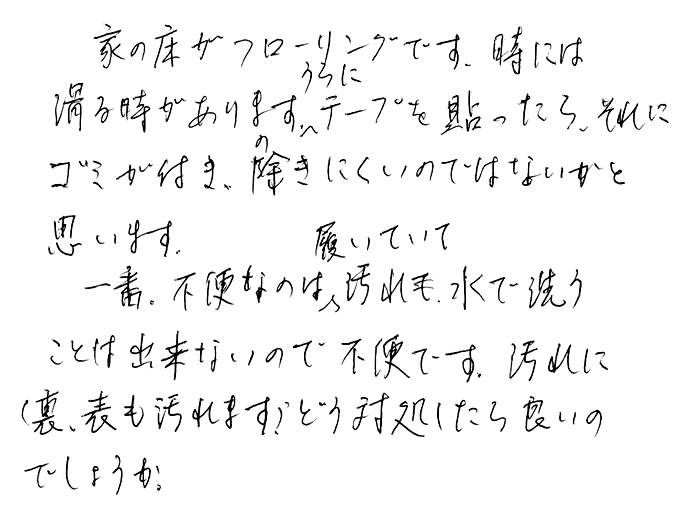 家の床がフローリングです。時には
滑る時があります。うらにテープを貼ったら、それに
ゴミが付き、除きにくいのではないかと
思います。
一番。不便なのは、履いていて汚れも、水で洗う
ことは出来ないので不便です。汚れに
(裏、表も汚れます)どう対処したら良いの
でしょうか。